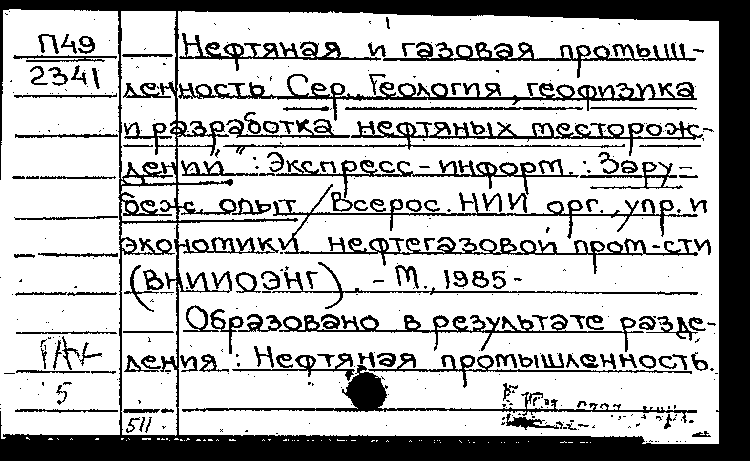 П49
2341
Нефтяная и газовая промыш-
ленность. Сер. Геология, геофизика
и разработка нефтяных месторож-
дений": Экспресс-информ.: Зару-
беж. опыт / Всерос. НИИ орг., упр. и
экономики нефтегазовой пром-сти
(ВНИИОЭНГ). - М., 1985-
Образовано в результате разде-
ления: Нефтяная промышленность.
5
511